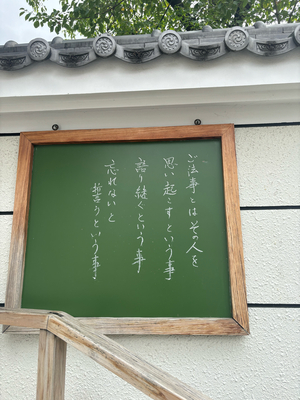 ご法事とはその人を
思い起こすという事
語り継ぐという事
忘れないと
誓うという事